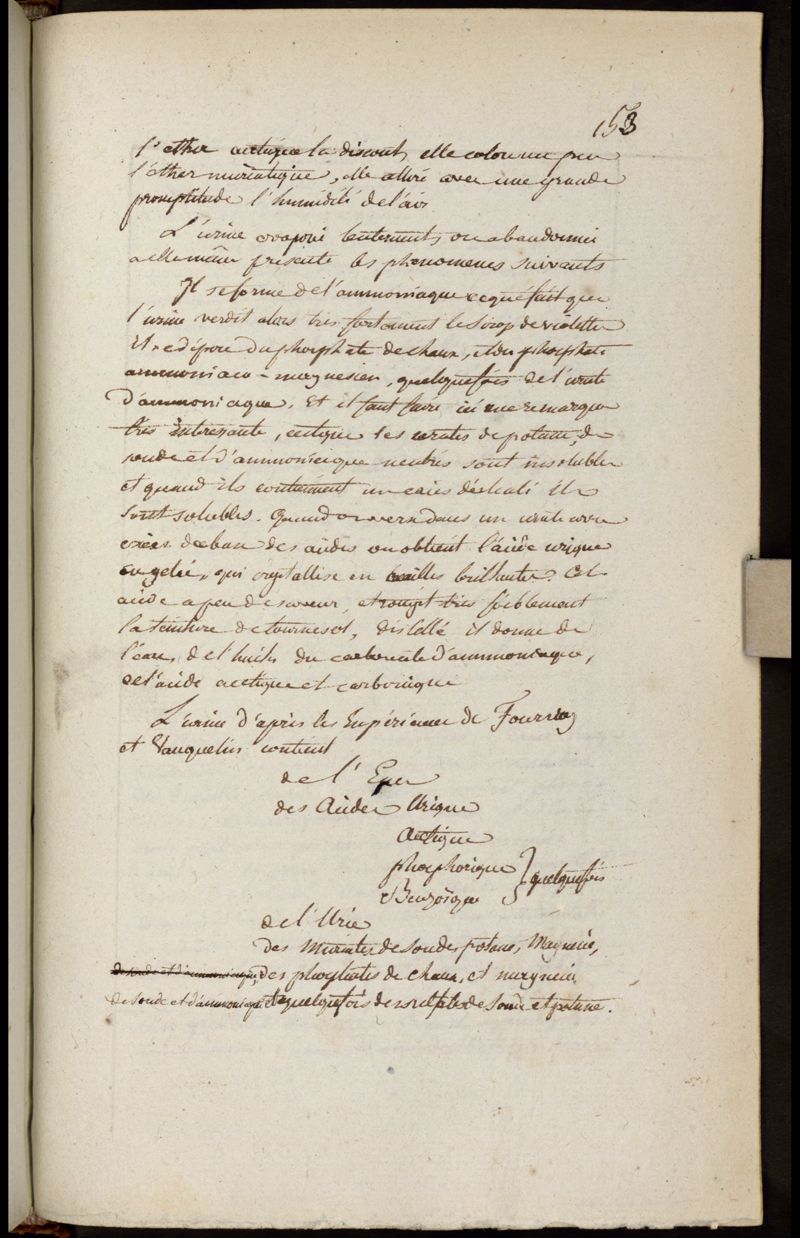 153
l'ether acetique la dissout, elle colore un peu
l'ether muriatique, elle attire avec une grande
promptitude l'humidité de l'air
L'urine evaporé lentement, ou abandonnée
a elle même présente les phenomenes suivants
Il se forme de l'ammoniaque ce qui fait que
l'urine verdit alors très fortement le sirop de violette
Il se dépose du phosphate de chaux, et du phosphate
ammoniaco-magnesien, quelquefois de l'urate
d'ammoniaque. Et il faut faire ici une remarque
très interessante, c'est que les urates de potasse, de
soude et d'ammoniaque neutres sont insolubles
et quand ils contiennent un excès d'alcali ils
sont solubles. Quand on verse dans un urate avec
excès de base des acides on obtient l'acide urique
en gelée, qui crystallise en écailles brillantes. Cet
acide a peu de saveur, et rougit très foiblement
la teinture de tournesol, distillé il donne de
l'eau, de l'huile, du carbonate d'ammoniaque,
de l'acide acetique et carbonique
L'urine d'après les Expériences de Fourcroy
et Vauquelin contient
de l'Eau
des Acides Urique
Acetique
phosphorique } quelquefois
et Benzoïque
de l'Urée
des Muriates de soude, potasse, Magnesie,
de soude et d'ammoniaque, des phosphates de chaux, et magnesie
de soude et d'ammoniaque et quelquefois des sulfates de soude et potasse.